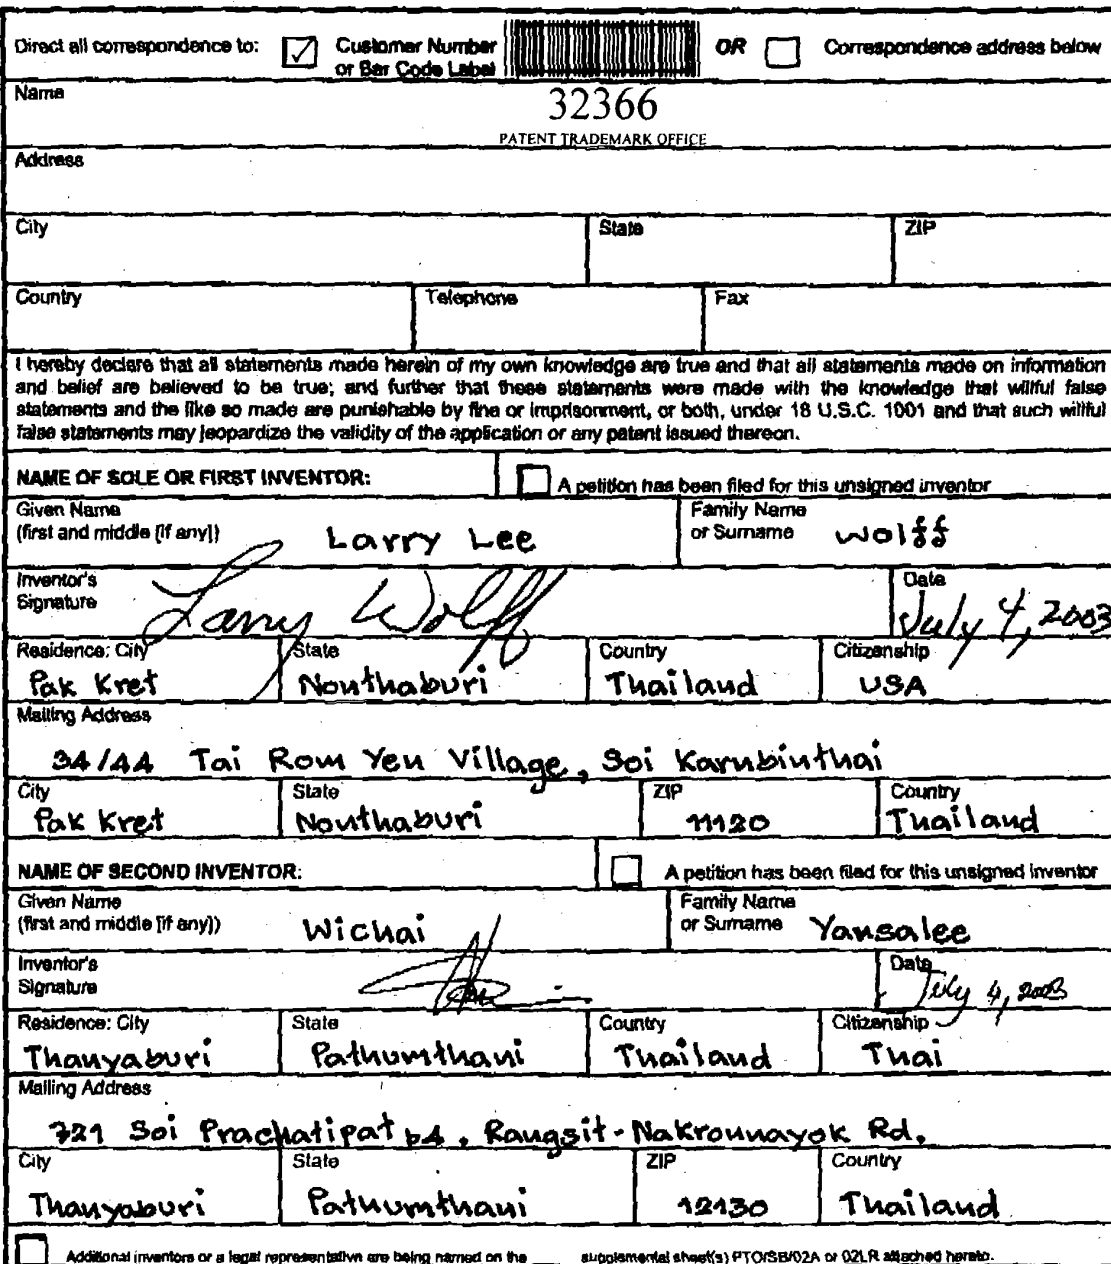 Direct all correspondence to: Customer Number or Bar Code Label OR Correspondence address below
Name
32366
PATENT TRADEMARK OFFICE
Address
City State ZIP
Country Telephone Fax
I hereby declare that all statements made herein of my own knowledge are true and that all statements made on information
and belief are believed to be true; and further that these statements were made with the knowledge that willful false
statements and the like so made are punishable by fine or imprisonment, or both, under 18 U.S.C. 1001 and that such willful
false statements may jeopardize the validity of the application or any patent issued thereon.
NAME OF SOLE OR FIRST INVENTOR: A petition has been filed for this unsigned inventor
Given Name (first and middle [if any]) Larry Lee Family Name or Surname Wolff
Inventor's Signature Larry Wolff Date July 4, 2003
Residence: City State Country Citizenship
Pak Kret Nonthaburi Thailand USA
Mailing Address
34/44 Tai Rom Yen Village, Soi Karnbinthai
City State ZIP Country
Pak Kret Nonthaburi 11120 Thailand
NAME OF SECOND INVENTOR: A petition has been filed for this unsigned inventor
Given Name (first and middle [if any]) Wichai Family Name or Surname Yansalee
Inventor's Signature Date July 4, 2003
Residence: City State Country Citizenship
Thanyaburi Pathumthani Thailand Thai
Mailing Address
721 Soi Prachatipat, Rangsit-Nakrounnayok Rd.
City State ZIP Country
Thanyaburi Pathumthani 12130 Thailand
Additional inventors or a legal representative are being named on the ___ supplemental sheet(s) PTO/SB/02A or 02LR attached hereto.